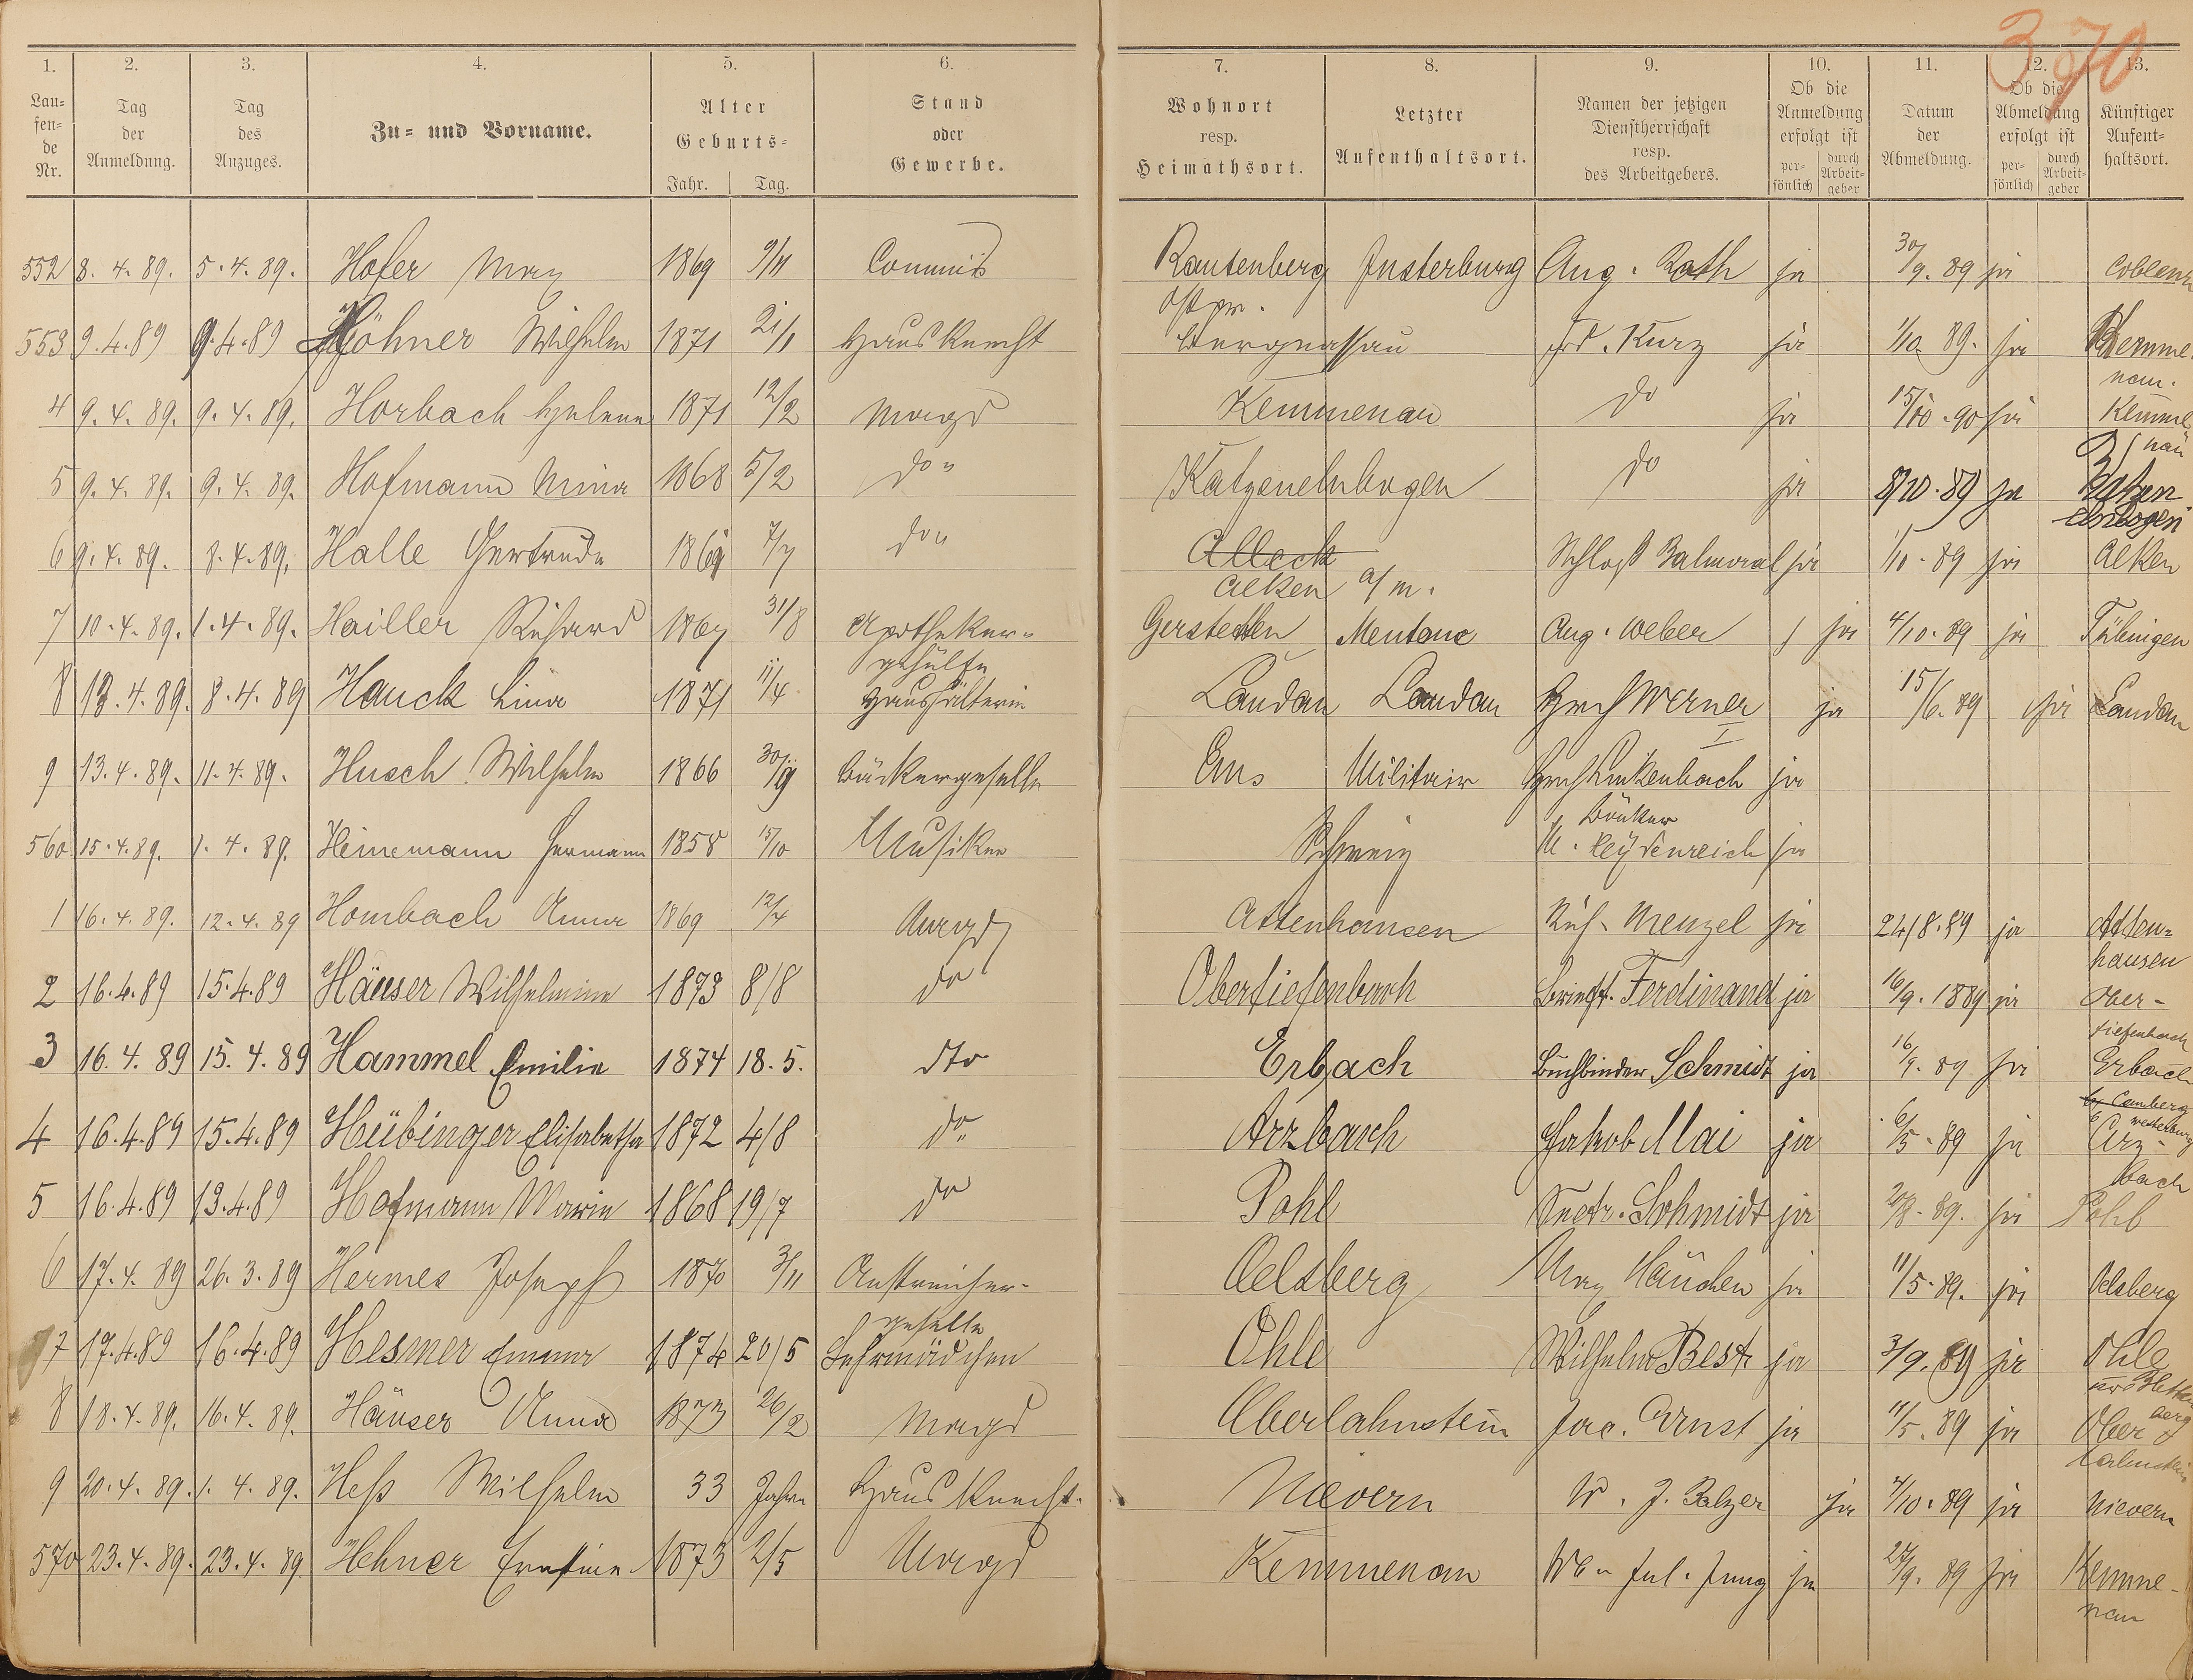 370
1. 2. 3. 4. 5. 6. 7. 8. 9. 10. 11. 12. 13.
Lau-fen-de Nr. Tag der Anmeldung. Tag des Anzuges. Zu- und Vorname. Alter Geburts- Jahr. Tag. Stand oder Gewerbe. Wohnort resp. Heimathsort. Letzter Aufenthaltsort. Namen der jetzigen Dienstherrschaft resp. des Arbeitgebers. Ob die Anmeldung erfolgt ist per-sönlich durch Arbeit-geber Datum der Abmeldung. Ob die Abmeldung erfolgt ist per-sönlich durch Arbeit-geber Künftiger Aufent-haltsort.
552 8.4.89. 5.4.89. Hofer Max 1869 9/11 Commis Rautenberg Insterburg Aug. Roth ja 30/9.89 ja Coblenz
Ostpr.
553 9.4.89 9.4.89 Höhner Wilhelm 1871 21/1 Hausknecht Bergnassau Fd. Kurz ja 1/10 89. ja Kemme
nau.
4 9.4.89. 9.4.89. Horbach Helene 1871 12/2 Magd Kemmenau do ja 15/10.90 ja Kemme
nau
5 9.4.89. 9.4.89. Hofmann Mina 1868 5/2 do " Katzenelnbogen do ja 8/10.89 ja Katzen
elnbogen
6 9.4.89. 8.4.89. Halle Gertrude 1869 7/7 do " Alleck Schloß Balmoral ja 1/10.89 ja Alken
Alken a/m.
7 10.4.89. 1.4.89. Hailler Richard 1867 31/8 Apotheker- Gerstetten Mentone Aug. Weber ja 4/10.89 ja Tübingen
gehülfe
8 13.4.89. 8.4.89 Hauck Lina 1871 11/4 Haushälterin Landau Landau Hrch Werner ja 15/6.89 ja Landau
I
9 13.4.89. 11.4.89. Husch Wilhelm 1866 30/9 Bäckergeselle Ems Militair Hrch Linkenbach ja
Bäcker
560 15.4.89. 1.4.89. Heinemann Hermann 1858 15/10 Musiker Schweiz M. Leydenreich ja
1 16.4.89. 12.4.89 Hombach Anna 1869 12/4 Magd Attenhausen Rich. Menzel ja 24/8.89 ja Atten-
hausen
2 16.4.89 15.4.89 Häuser Wilhelmine 1873 8/8 do Obertiefenbach Brieft. Ferdinand ja 16/9.1889 ja Ober-
tiefenbach
3 16.4.89 15.4.89 Hammel Emilie 1874 18.5. dto Erbach Buchbinder Schmidt ja 16/9.89 ja Erbach
b/ Camberg
b/ Westerburg
4 16.4.89 15.4.89 Hübinger Elisabetha 1872 4/8 do " Arzbach Jakob Mai ja 6/5.89 ja Arz-
bach
5 16.4.89 13.4.89 Hofmann Marie 1868 19/7 do Pohl Schmidt ja 20/8.89. ja Pohl
6 17.4.89 26.3.89 Hermes Joseph 1870 3/11 Anstreicher- Oelsberg Max Häuchen ja 11/5.89. ja Oelsberg
geselle
7 17.4.89 16.4.89 Hesmer Emma 1874 20/5 Lehrmädchen Ohle Wilhelm Best ja 3/9.89 ja Ohle
8 18.4.89. 16.4.89. Häuser Anna 1873 26/2 Magd Oberlahnstein Jac. Ernst ja 11/5.89 ja Ober
lahnstein
9 20.4.89. 1.4.89. Heß Wilhelm 33 Jahre Hausknecht. Nievern W. J. Balzer ja 4/10.89 ja Nievern
570 23.4.89. 23.4.89. Hehner Ernstine 1873 2/5 Magd Kemmenau We. Jul. Jung ja 27/9.89 ja Kemme-
nau